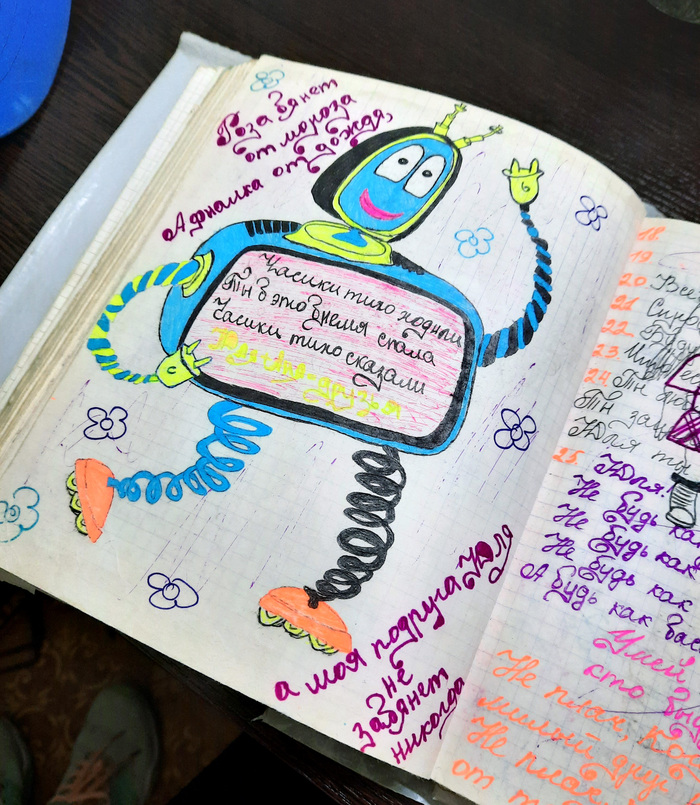 Роза вянет
от мороза
А фиалка от дождя,
Часики тихо ходили
Ты в это время спала
Часики тихо сказали
друзья
а моя подруга Юля
не
завянет
никогда
18.
19
20 Все
21
22
23
24. Ты
Ты
Юля ты
25. Юля!
Не будь ка
Не будь как
Не будь как
А будь как вас
Умей
кто бы
Не плач,
милый друг
Не плач
от т